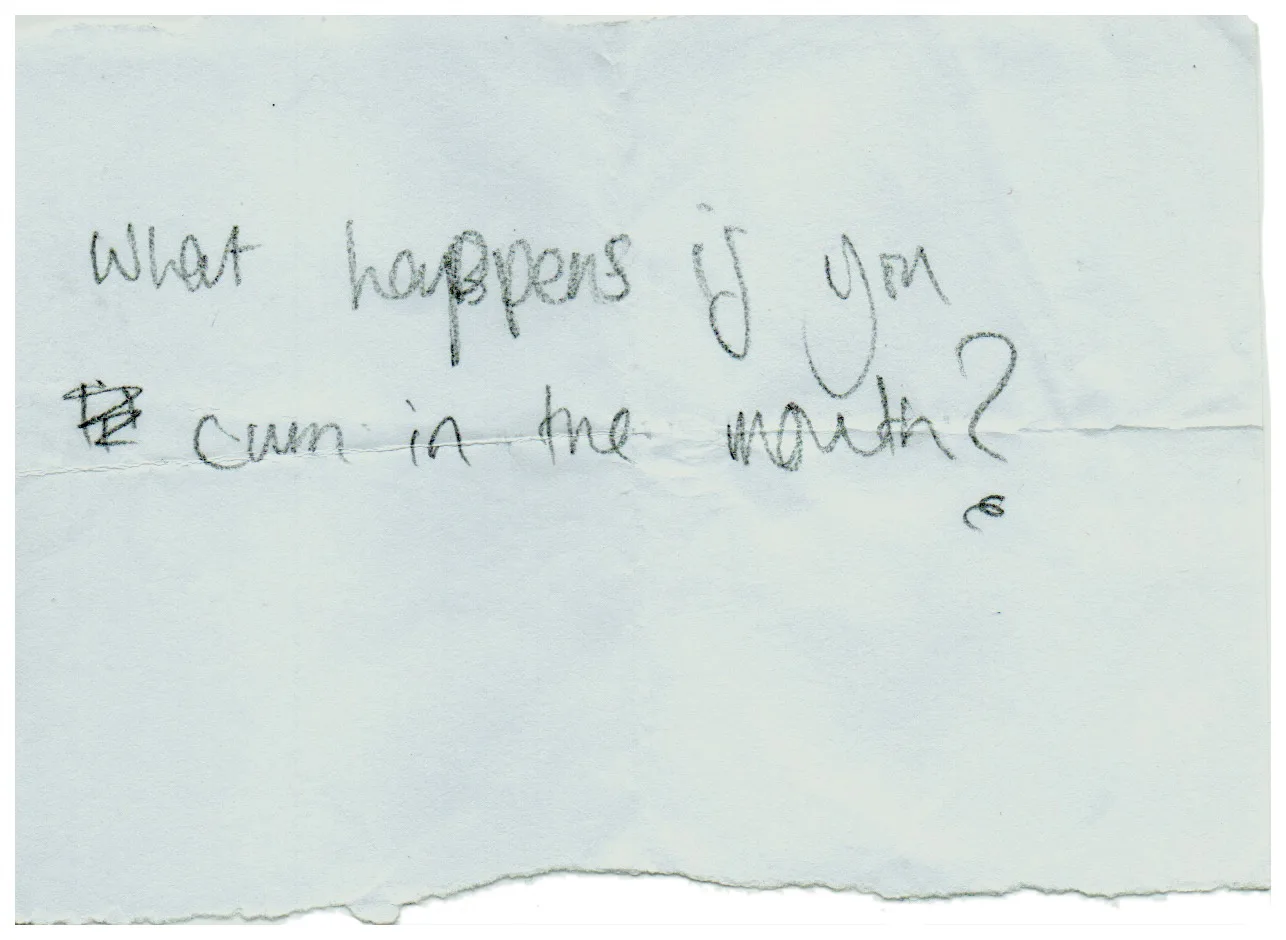 What happens if you
cum in the mouth?